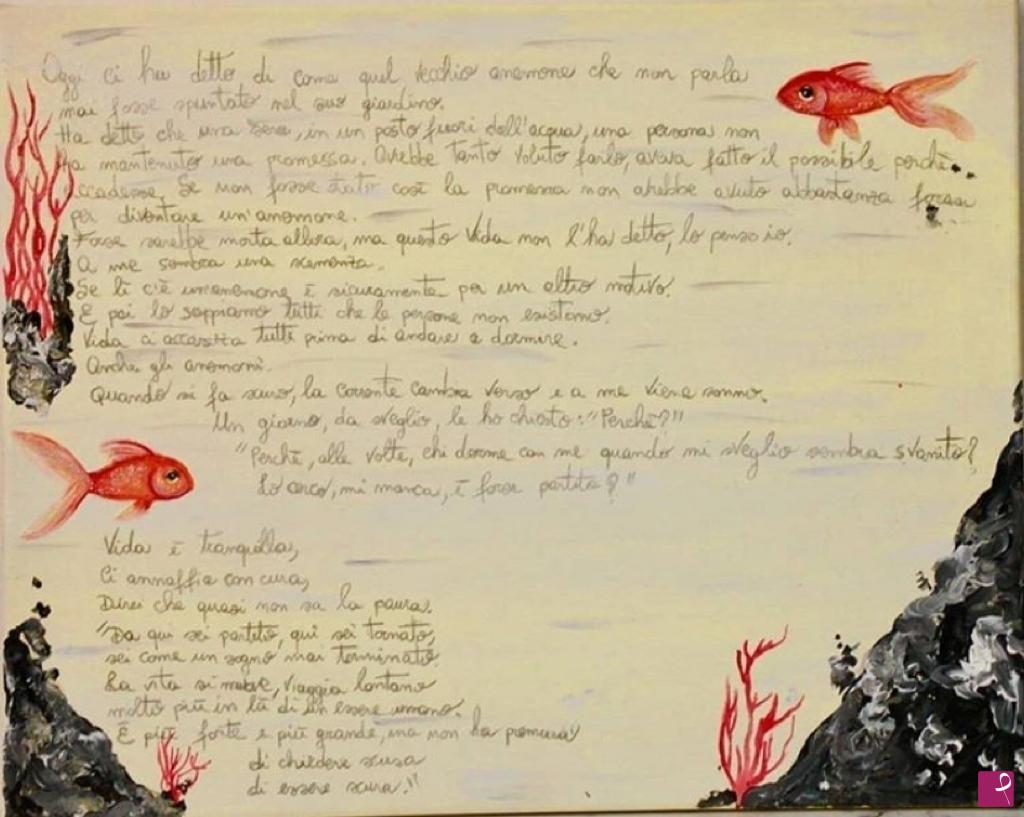 Oggi ci ha detto di come quel vecchio anemone che non parla
mai fosse spuntato nel suo giardino.
Ha detto che una sera, in un posto fuori dall'acqua, una persona non
ha mantenuto una promessa. Avrebbe tanto voluto farlo, aveva fatto il possibile perchè
accadesse. Se non fosse stato così la promessa non avrebbe avuto abbastanza forza
per diventare un'anemone.
Forse sarebbe morta allora, ma questo Vida non l'ha detto, lo penso io.
A me sembra una scemenza.
Se lì c'è un'anemone è sicuramente per un altro motivo.
E poi lo sappiamo tutti che le persone non esistono.
Vida ci accarezza tutti prima di andare a dormire.
Anche gli anemoni.
Quando si fa scuro, la corrente cambia verso e a me viene sonno.
Un giorno, da sveglio, le ho chiesto: "Perchè?"
"Perchè, alle volte, chi dorme con me quando mi sveglio sembra svanito?
Lo cerco, mi manca, è forse partito?"
Vida è tranquilla,
Ci annaffia con cura,
Direi che quasi non sa la paura.
"Da qui sei partito, qui sei tornato,
sei come un sogno mai terminato.
La vita si muove, viaggia lontano
molto più in là di un essere umano.
È più forte e più grande, ma non ha premura
di chiedere scusa
di essere scura."